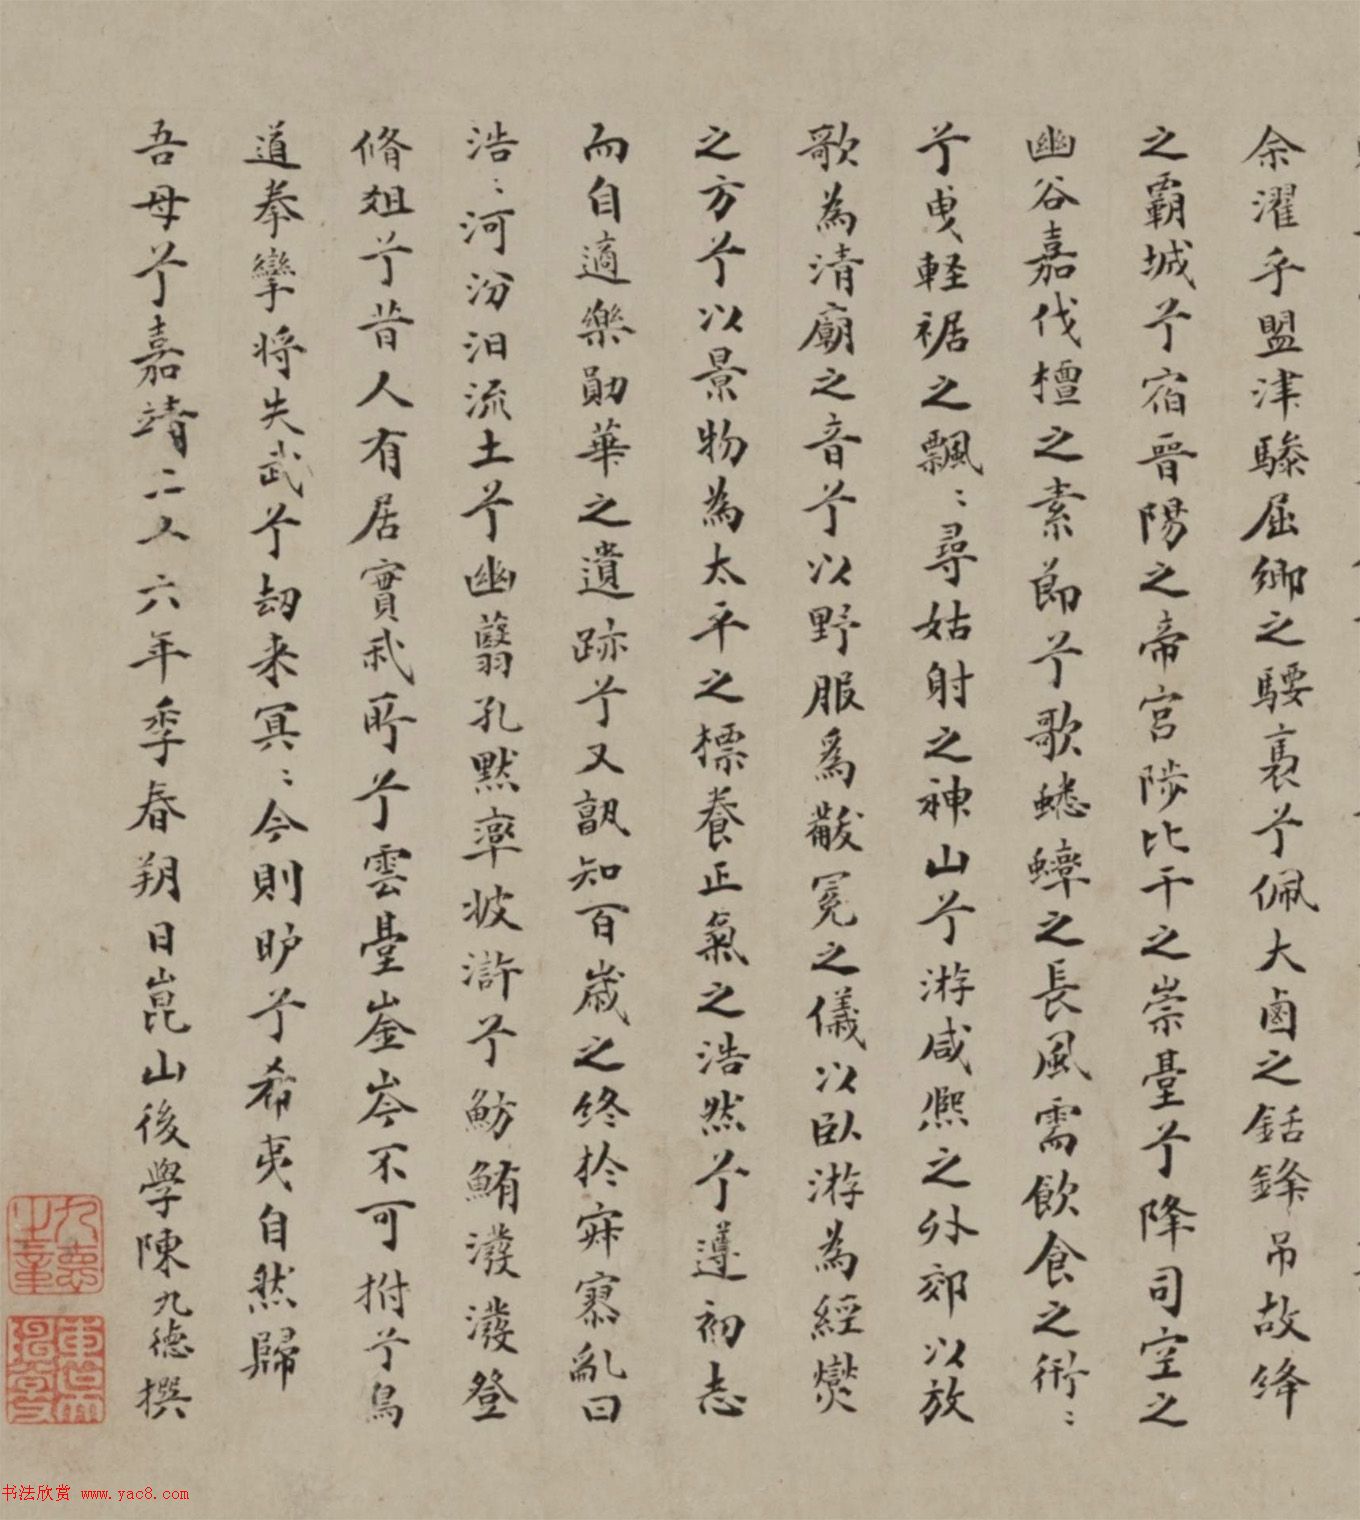 余濯乎盟津驂屈鄉之騕裹兮佩大鹵之銛鋒吊故絳
之霸城兮宿晉陽之帝宮陟比干之崇臺兮降司空之
幽谷嘉伐檀之素節兮歌蟋蟀之長風需飲食之衎〻
兮曳軽裾之飄〻尋姑射之神山兮游咸熙之外郊以放
歌為清廟之音兮以野服為黻冕之儀以臥游為經爕
之方兮以景物為太平之標養正氣之浩然兮遵初志
而自適樂勛華之遺跡兮又孰知百歲之終於寂寞亂曰
浩〻河汾汨流土兮幽蘙孔默率坡滸兮魴鮪潑潑登
脩俎兮昔人有居實我所兮雲臺崟岑不可拊兮鳥
道拳攣将失武兮劫来冥〻今則旷兮希夷自然歸
吾母兮嘉靖二人六年季春朔日崑山後學陳九德撰
书法欣赏 www.yac8.com